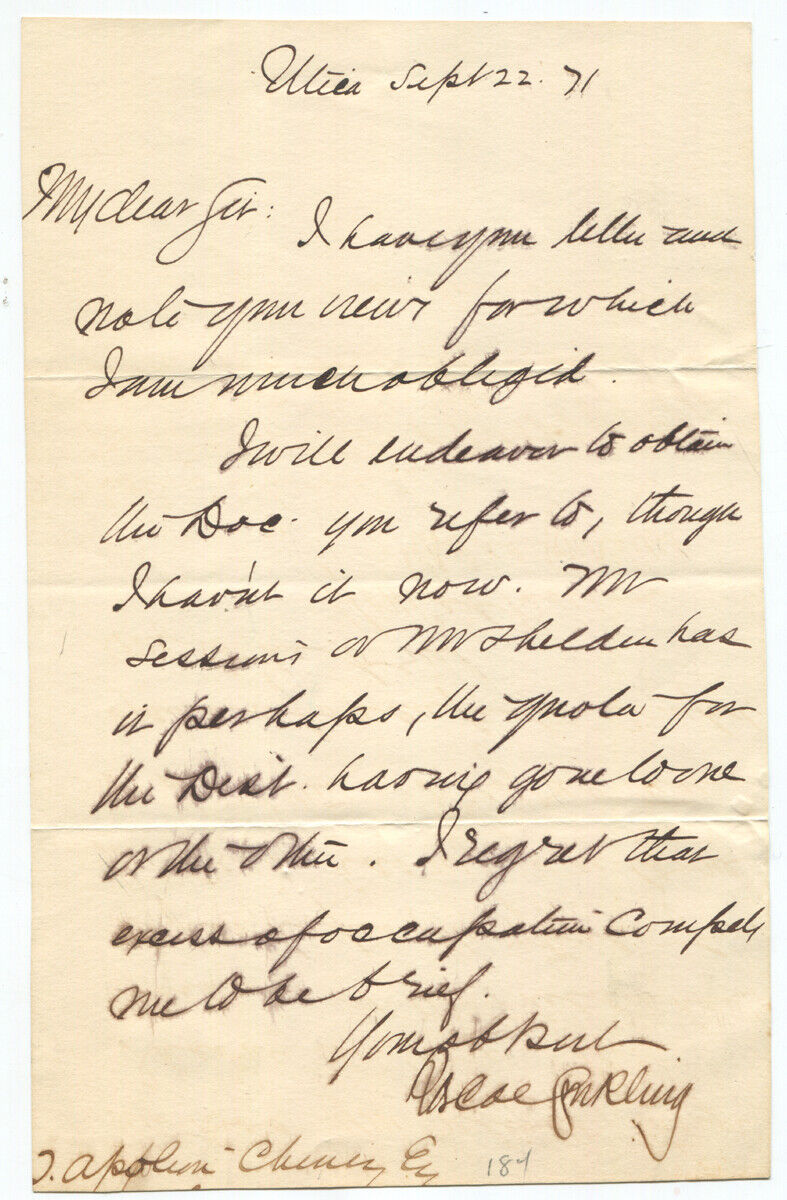 Utica Sept 22. 71
My dear Sir:
I have your letter and
note your views for which
I am much obliged.
I will endeavor to obtain
the Doc. you refer to, though
I hav'nt it now. Mr
Sessions or Mr Shelden has
it perhaps, the quota for
the Dist. having gone to one
or the other. I regret that
excess of occupation compels
me to be brief.
Your obt Servt
Roscoe Conkling
T. Apoleon Cheney Esq
187